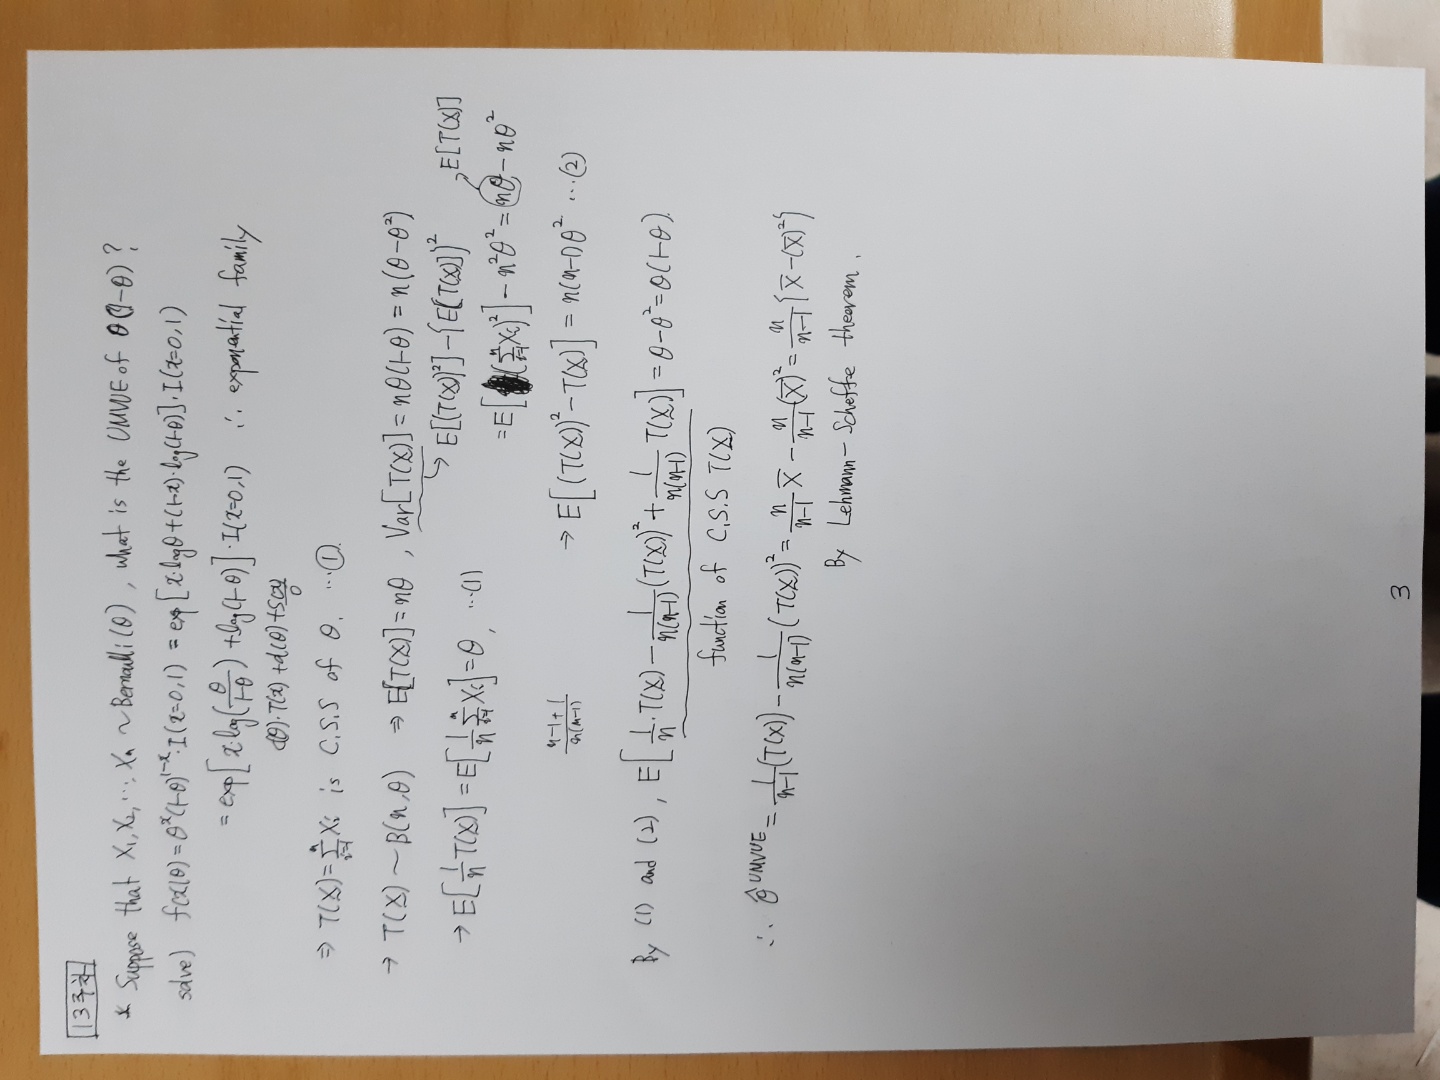 13주차
* Suppose that X₁, X₂, ⋯, Xₙ ~ Bernoulli(θ), what is the UMVUE of θ(1-θ)?
solve) f(x|θ) = θˣ(1-θ)¹⁻ˣ·I(x=0,1) = exp[x·logθ+(1-x)·log(1-θ)]·I(x=0,1)
= exp[x·log(θ/(1-θ)) + log(1-θ)]·I(x=0,1) ∴ exponential family
c(θ)·T(x)+d(θ)+S(x)
0
⇒ T(X) = Σᵢ₌₁ⁿ Xᵢ is C.S.S of θ. ⋯①
→ T(X) ~ B(n,θ) ⇒ E[T(X)] = nθ, Var[T(X)] = nθ(1-θ) = n(θ-θ²)
↳ E[(T(X))²] - {E[T(X)]}²
→ E[1/n T(X)] = E[1/n Σᵢ₌₁ⁿ Xᵢ] = θ, ⋯(1)
= E[(Σᵢ₌₁ⁿ Xᵢ)²] - n²θ² = nθ - nθ²
↗ E[T(X)]
(n-1+1)/(n(n-1))
→ E[(T(X))² - T(X)] = n(n-1)θ² ⋯(2)
By (1) and (2), E[1/n·T(X) - 1/(n(n-1)) (T(X))² + 1/(n(n-1)) T(X)] = θ-θ² = θ(1-θ).
function of C.S.S T(X)
∴ θ̂ᵁᴹⱽᵁᴱ = 1/(n-1) (T(X)) - 1/(n(n-1)) (T(X))² = n/(n-1) X̄ - n/(n-1) (X̄)² = n/(n-1) {X̄-(X̄)²}
By Lehmann-Scheffe theorem.
3